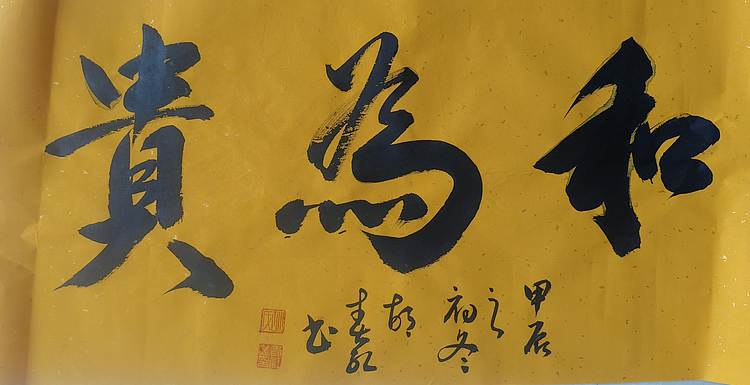 和為貴
甲辰
之
初冬
胡
春
書